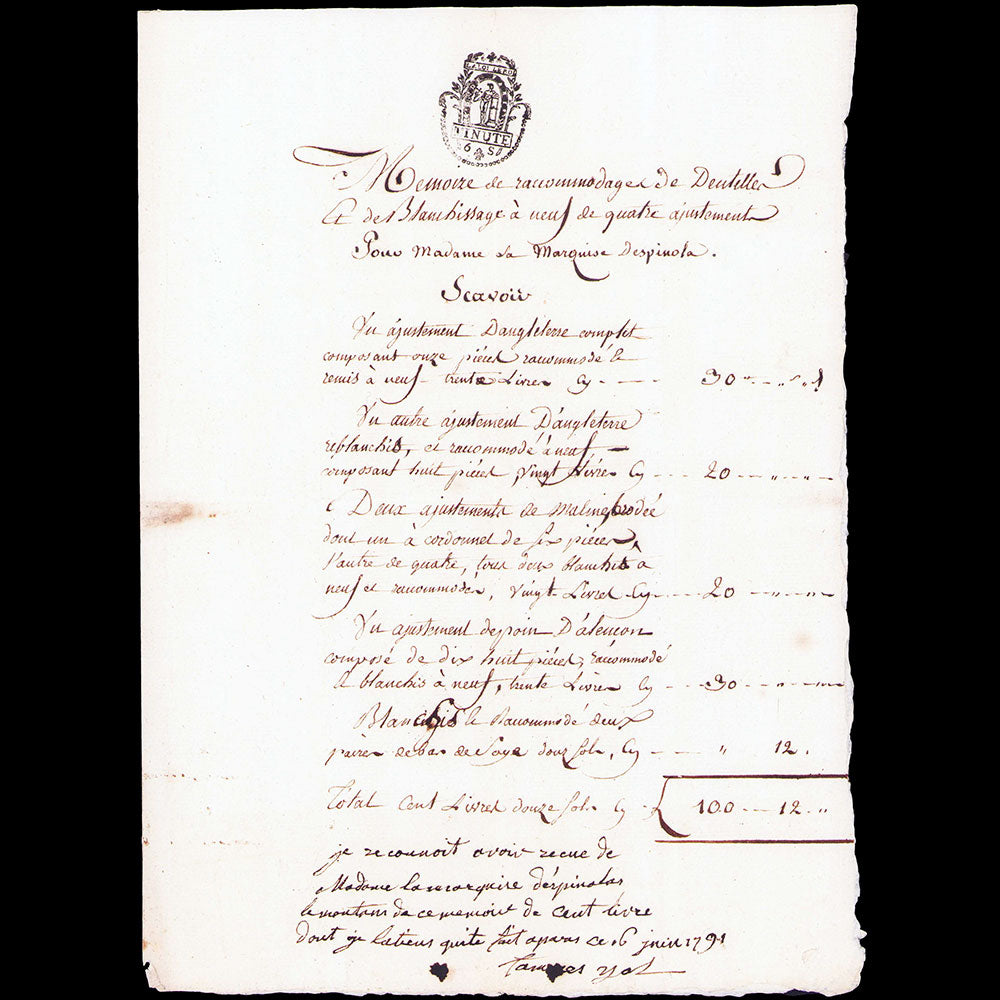 LA LOI LE ROI
MINUTE
6 S.
Memoire de raccommodages de Dentelles
Et de Blanchissage à neuf de quatre ajustements
Pour Madame La Marquise Despinola.
Scavoir
Un ájustement D'angléterre complet
composant onze piéces raccommodé &
remis à neuf trente Livres Cy 30 " "
Un autre ájustement D'angléterre
reblanchis, et raccommodé à neuf
composant huit piéces, vingt Livres Cy 20 " "
Deux ajustements de maline brodée
dont un à cordonnet de six piéces,
l'autre de quatre, tous deux blanchis à
neuf et raccommodés, vingt Livres Cy 20 " "
Un ajustement depoin D'alençon
composé de dix huit piéces, raccommodé
& blanchis à neuf, trente Livres Cy 30 " "
Blanchis & Raccommodé deux
paires de bas de Soye douz Sols, Cy " 12.
Total Cent Livres douze Sols Cy 100 12 "
je reconnoit avoir recue de
Madame la marquise déspinolas
le montans de ce memoire de cent livre
dont je latiens quite fait aparis ce 16 juin 1791